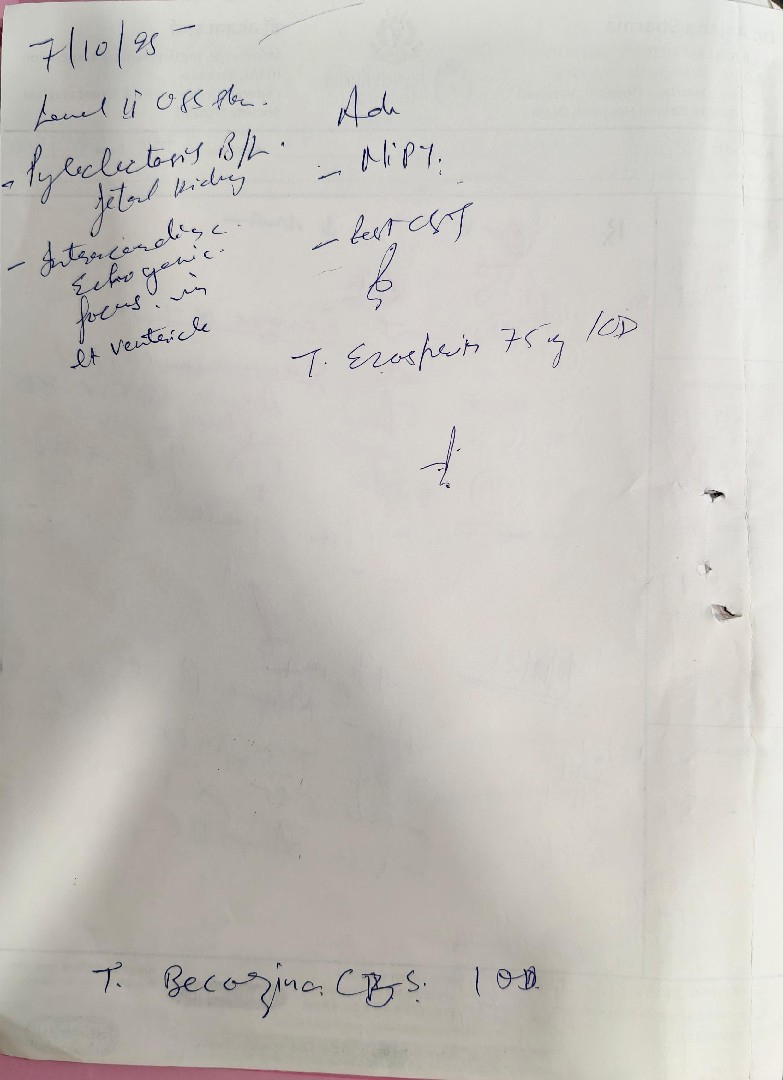 7/10/95
Level II USS
- Pyelectosis B/L.
fetal kidney
- Intracardiac
Echogenic
focus in
lt ventricle
Adv
- NIPT.
- 
T. Ecosprin 75 mg 1OD
T. Becozinc 1 OD